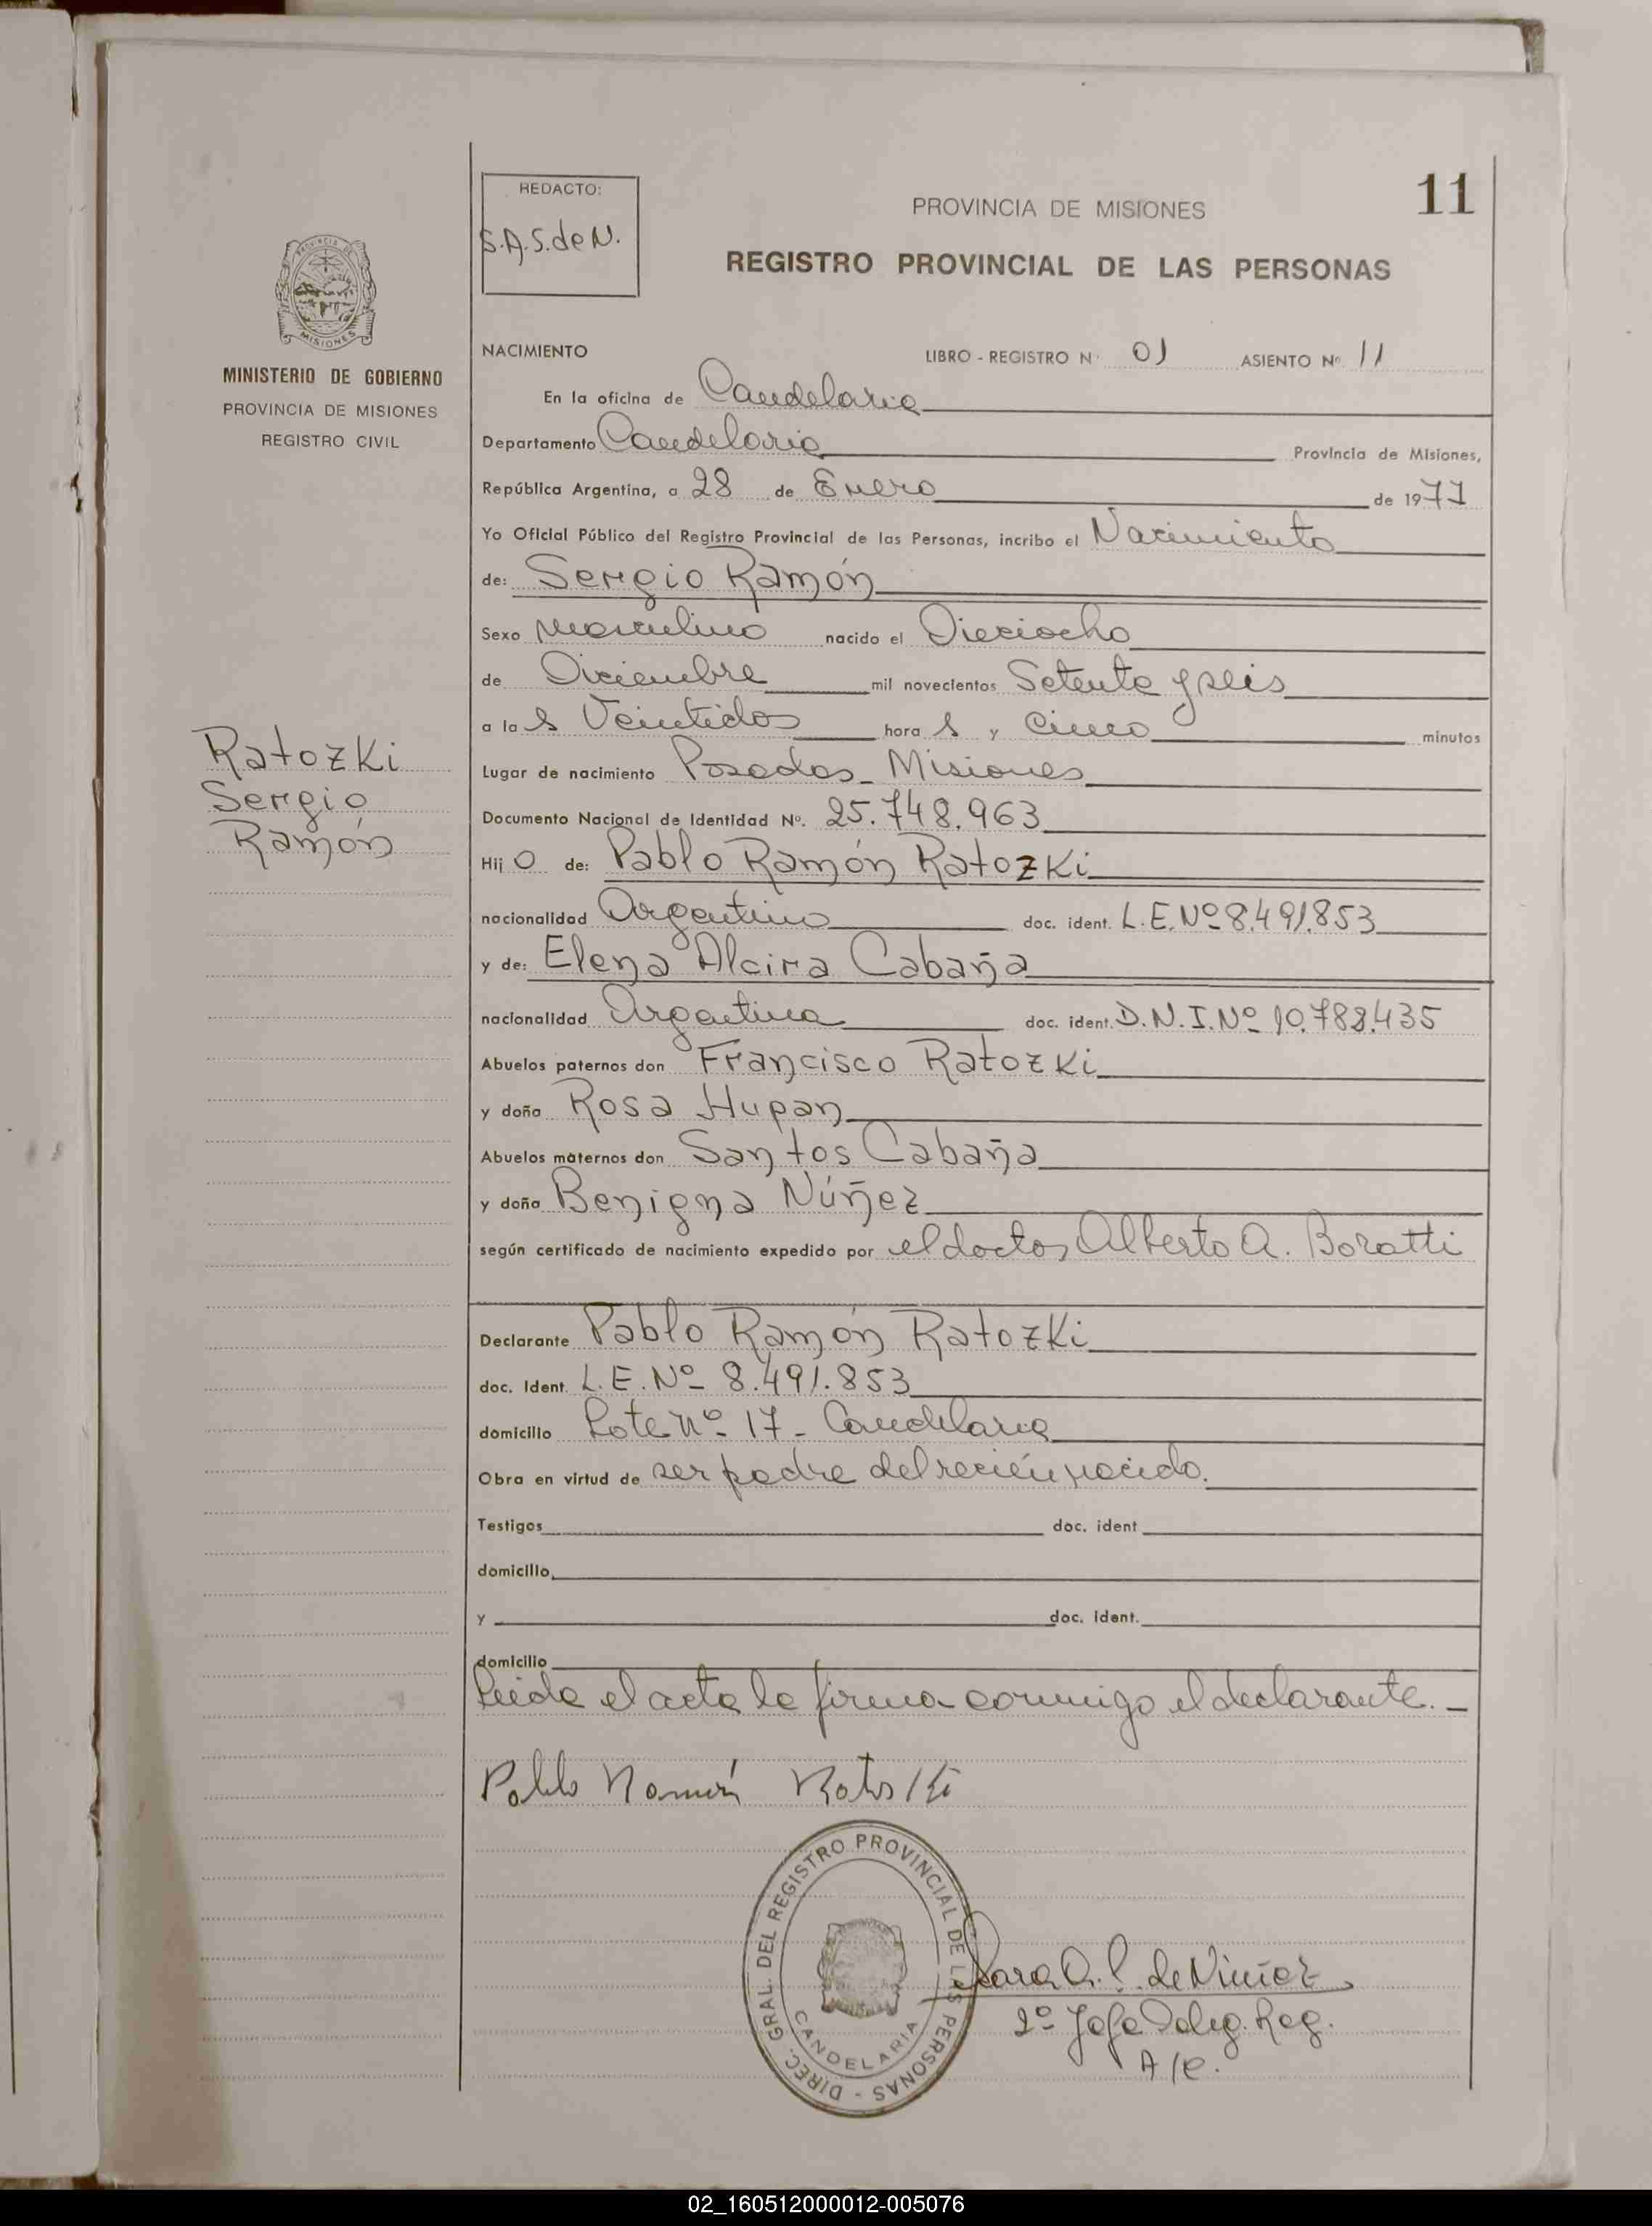 11
REDACTO:
S.A.S. de N.
PROVINCIA DE MISIONES
REGISTRO PROVINCIAL DE LAS PERSONAS
PROVINCIA DE
MISIONES
MINISTERIO DE GOBIERNO
PROVINCIA DE MISIONES
REGISTRO CIVIL
Ratozki
Sergio
Ramón
NACIMIENTO LIBRO - REGISTRO N° 01 ASIENTO Nº 11
En la oficina de Candelaria
Departamento Candelaria Provincia de Misiones,
República Argentina, a 28 de Enero de 1977
Yo Oficial Público del Registro Provincial de las Personas, incribo el Nacimiento
de: Sergio Ramón
Sexo Masculino nacido el Dieciocho
de Diciembre mil novecientos Setenta y seis
a la s Veintidos hora s y Cinco minutos
Lugar de nacimiento Posadas - Misiones
Documento Nacional de Identidad Nº. 25.748.963
Hij o de: Pablo Ramón Ratozki
nacionalidad Argentino doc. ident. L.E. Nº 8.491.853
y de: Elena Alcira Cabaña
nacionalidad Argentina doc. ident. D.N.I. Nº 10.788.435
Abuelos paternos don Francisco Ratozki
y doña Rosa Hupan
Abuelos maternos don Santos Cabaña
y doña Benigna Núñez
según certificado de nacimiento expedido por el doctor Alberto A. Boratti
Declarante Pablo Ramón Ratozki
doc. Ident. L.E. Nº 8.491.853
domicilio Lote nº 17 - Candelaria
Obra en virtud de ser padre del recién nacido.
Testigos doc. ident
domicilio
y doc. ident.
domicilio
Leida el acta la firma conmigo el declarante. -
Pablo Ramón Ratozki
DIREC. GRAL. DEL REGISTRO PROVINCIAL DE LAS PERSONAS -
CANDELARIA
Sara A. S. de Núñez
2º Jefe Deleg. Reg.
A/C.
02_160512000012-005076